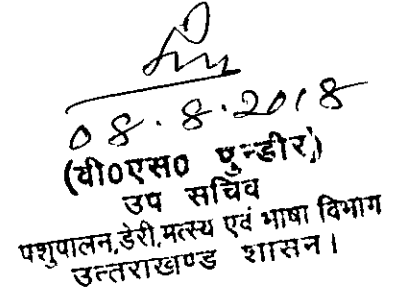 08.8.2018
(वी०एस० पुन्डीर)
उप सचिव
पशुपालन,डेरी,मत्स्य एवं भाषा विभाग
उत्तराखण्ड शासन।